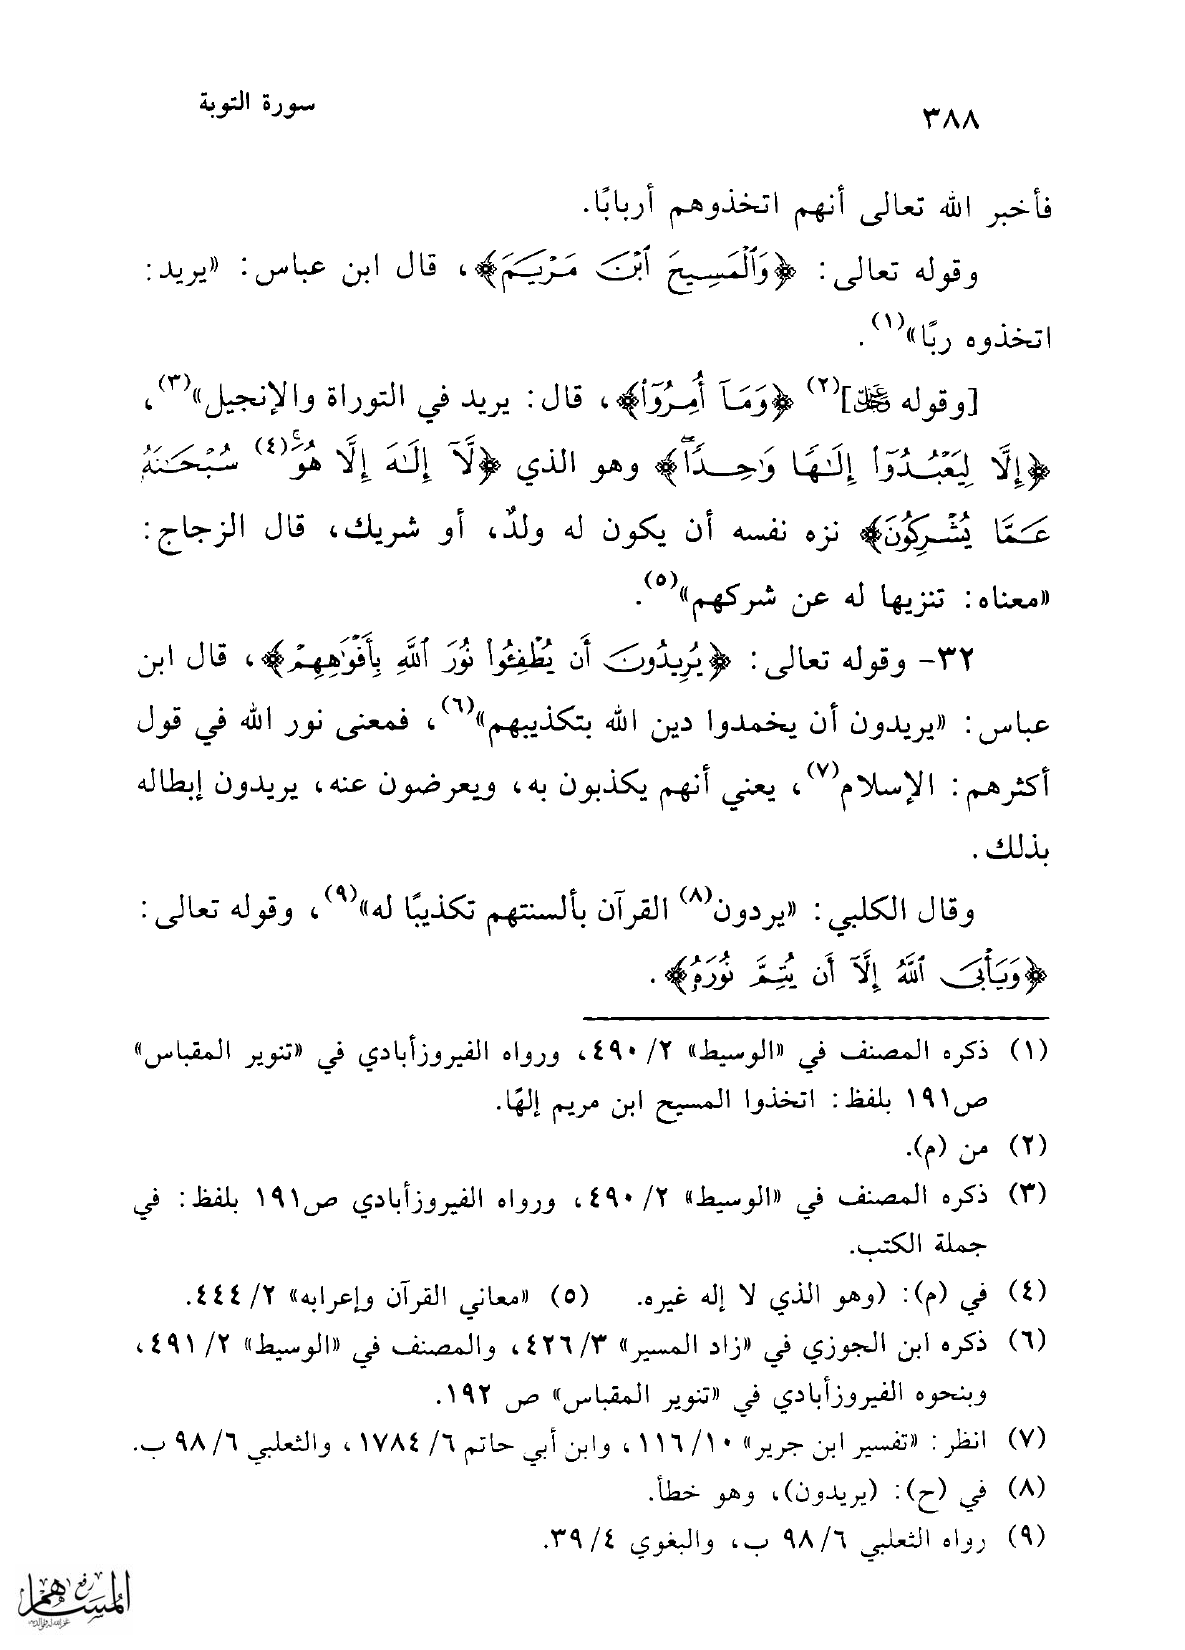 ٣٨٨
سورة التوبة
فأخبر الله تعالى أنهم اتخذوهم أربابًا.
وقوله تعالى: ﴿وَٱلْمَسِيحَ ٱبْنَ مَرْيَمَ﴾، قال ابن عباس: «يريد:
اتخذوه ربًا»(١).
[وقوله ﷺ](٢) ﴿وَمَآ أُمِرُوٓا۟﴾، قال: يريد في التوراة والإنجيل»(٣)،
﴿إِلَّا لِيَعْبُدُوٓا۟ إِلَـٰهًا وَٰحِدًاۖ﴾ وهو الذي ﴿لَّآ إِلَـٰهَ إِلَّا هُوَۚ(٤) سُبْحَـٰنَهُۥ
عَمَّا يُشْرِكُونَ﴾ نزه نفسه أن يكون له ولدٌ، أو شريك، قال الزجاج:
«معناه: تنزيها له عن شركهم»(٥).
٣٢- وقوله تعالى: ﴿يُرِيدُونَ أَن يُطْفِـُٔوا۟ نُورَ ٱللَّهِ بِأَفْوَٰهِهِمْ﴾، قال ابن
عباس: «يريدون أن يخمدوا دين الله بتكذيبهم»(٦)، فمعنى نور الله في قول
أكثرهم: الإسلام(٧)، يعني أنهم يكذبون به، ويعرضون عنه، يريدون إبطاله
بذلك.
وقال الكلبي: «يردون(٨) القرآن بألسنتهم تكذيبًا له»(٩)، وقوله تعالى:
﴿وَيَأْبَى ٱللَّهُ إِلَّآ أَن يُتِمَّ نُورَهُۥ﴾.
(١) ذكره المصنف في «الوسيط» ٢/ ٤٩٠، ورواه الفيروزأبادي في «تنوير المقباس»
ص١٩١ بلفظ: اتخذوا المسيح ابن مريم إلهًا.
(٢) من (م).
(٣) ذكره المصنف في «الوسيط» ٢/ ٤٩٠، ورواه الفيروزأبادي ص١٩١ بلفظ: في
جملة الكتب.
(٤) في (م): (وهو الذي لا إله غيره. (٥) «معاني القرآن وإعرابه» ٢/ ٤٤٤.
(٦) ذكره ابن الجوزي في «زاد المسير» ٣/ ٤٢٦، والمصنف في «الوسيط» ٢/ ٤٩١،
وبنحوه الفيروزأبادي في «تنوير المقباس» ص ١٩٢.
(٧) انظر: «تفسير ابن جرير» ١٠/ ١١٦، وابن أبي حاتم ٦/ ١٧٨٤، والثعلبي ٦/ ٩٨ ب.
(٨) في (ح): (يريدون)، وهو خطأ.
(٩) رواه الثعلبي ٦/ ٩٨ ب، والبغوي ٤/ ٣٩.